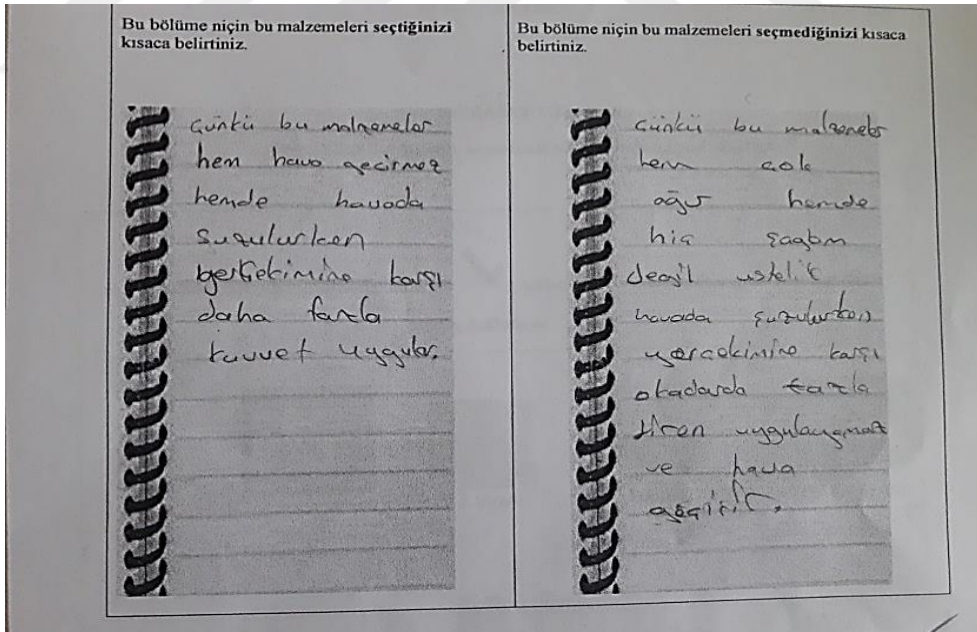 Bu bölüme niçin bu malzemeleri seçtiğinizi
kısaca belirtiniz.
Çünkü bu malzemeler
hem hava geçirmez
hemde havada
suzulurken
yerçekimine karşı
daha fazla
kuvvet uygular.
Bu bölüme niçin bu malzemeleri seçmediğinizi kısaca
belirtiniz.
Çünkü bu malzemeler
hem çok
ağır hemde
hiç sağlam
değil ustelik
havada suzulurken
yerçekimine karşı
okadarda fazla
diren uygulayamaz
ve hava
geçirir.